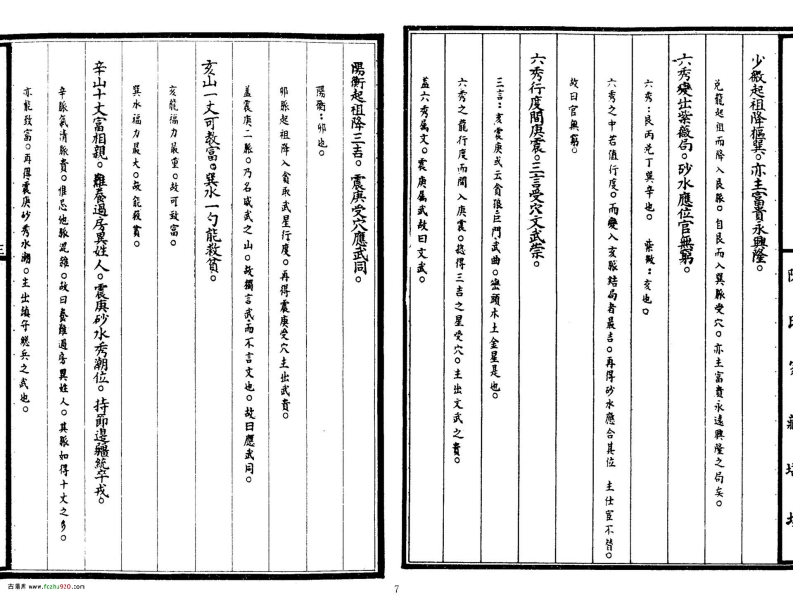 少微起祖降樞巽。亦主富貴永興隆。
兌龍起祖而降入艮脉。自艮而入巽脉受穴。亦主富貴永遠興隆之局矣。
六秀變出紫薇局。砂水應位官無窮。
六秀：艮丙兌丁巽辛也。 紫薇：亥也。
六秀之中若值行度。而變入亥脉結局者最吉。再得砂水應合其位 主仕宦不替。
故曰官無窮。
六秀行度間庚震。三吉受穴文武崇。
三吉：亥震庚或云貪狼巨門武曲。巒頭木土金星是也。
六秀之龍行度而間入庚震。搃得三吉之星受穴。主出文武之貴。
蓋六秀屬文。震庚屬武故曰文武。
陽衡起祖降三吉。震庚受穴應武同。
陽衡：卯也。
卯脉起祖降入貪取武星行度。再得震庚受穴主出武貴。
蓋震庚二脈。乃名威武之山。故獨言武。而不言文也。故曰應武同。
亥山一丈可教富。巽水一勺能救貧。
亥龍福力最重。故可致富。
巽水福力最大。故能救貧。
辛山十丈富相親。難養過房異姓人。震庚砂水秀潮位。持節邊疆統卒戎。
辛脉氣清脉貴。惟忌他脉混雜。故曰養難過房異姓人。其脉如得十丈之多。
亦能致富。再得震庚砂秀水潮。主出鎮守總兵之武也。
三
陳氏家藏
7
古易庵 www.fozhu920.com